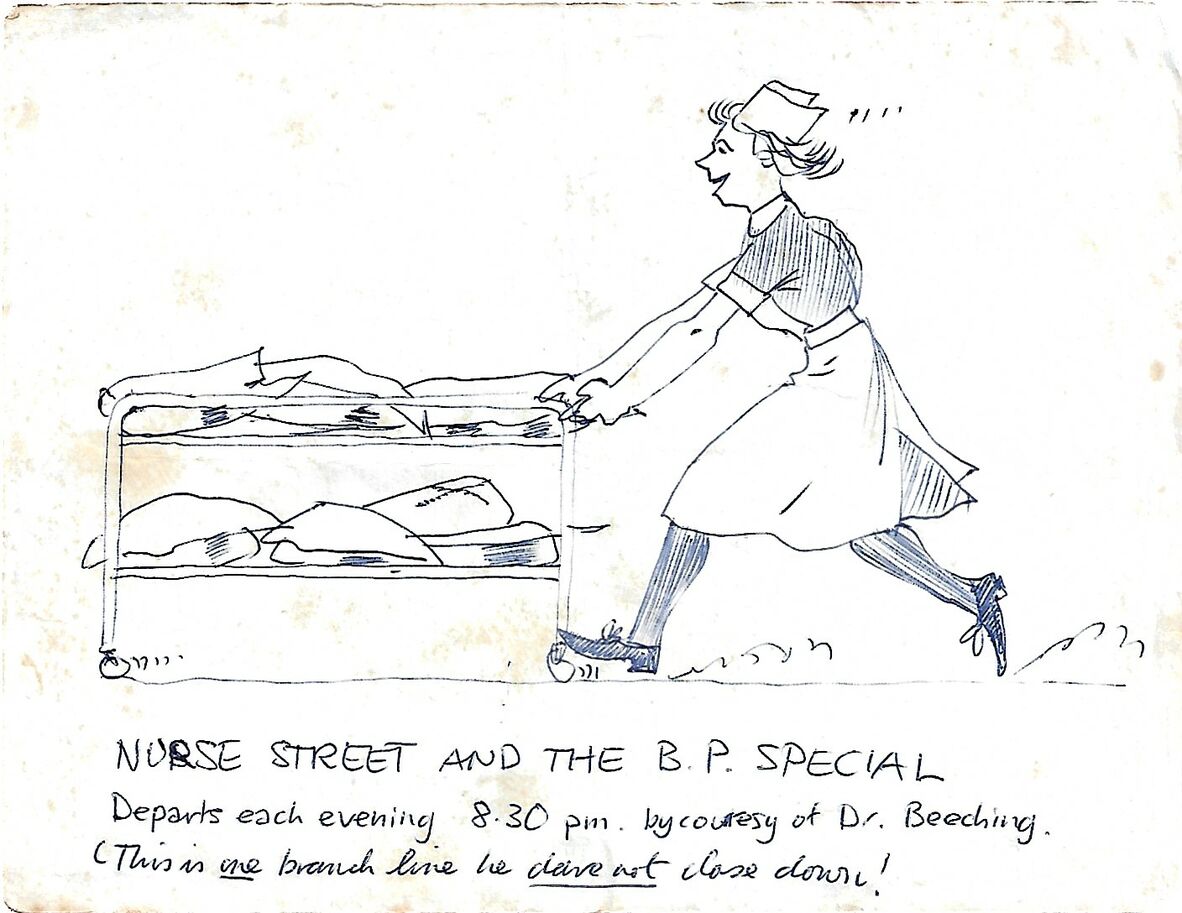 NURSE STREET AND THE B.P. SPECIAL
Departs each evening 8.30 pm. by courtesy of Dr. Beeching.
(This is one branch line he dare not close down!